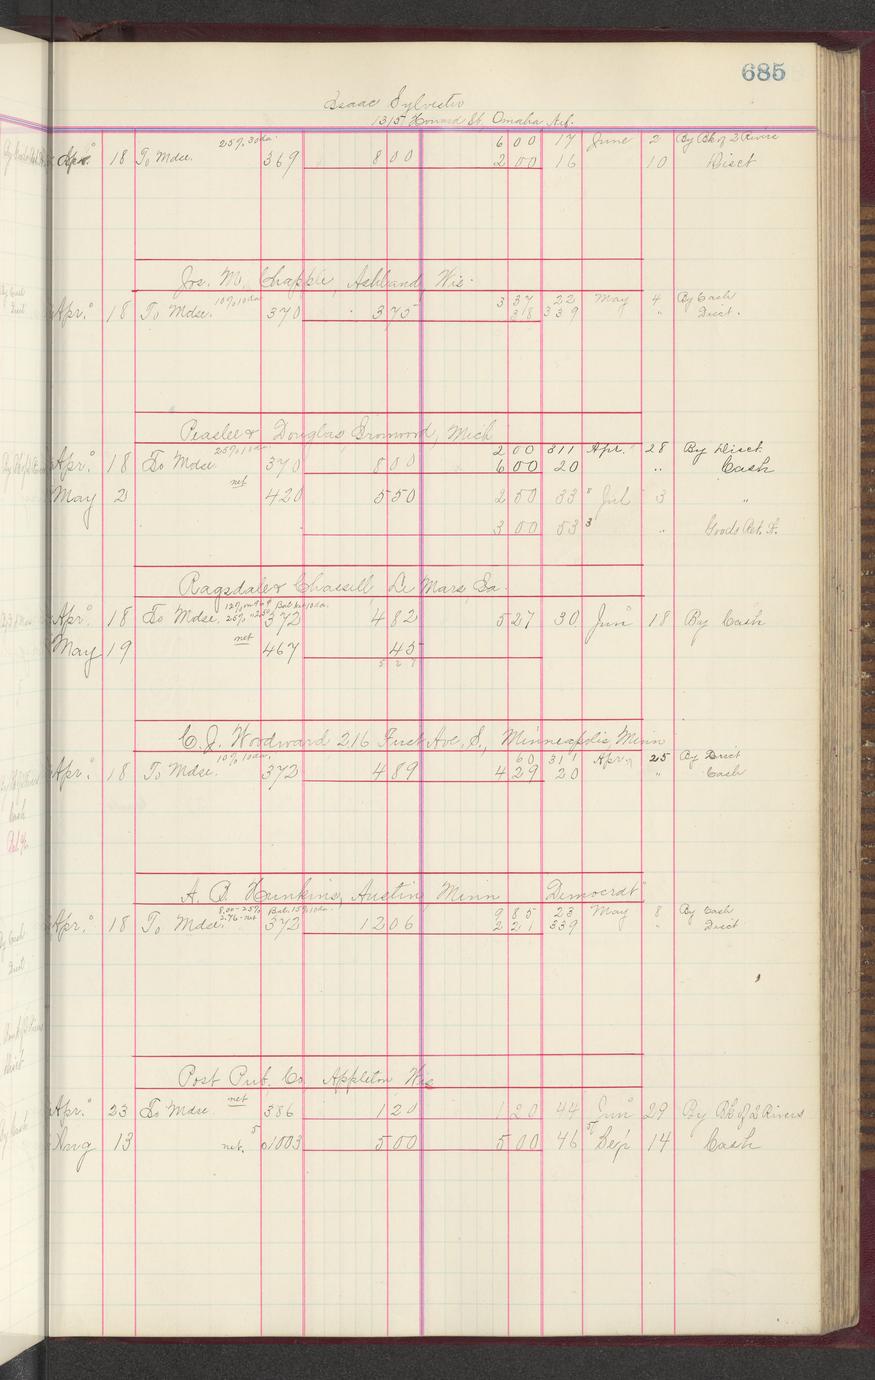 685
Isaac Sylvester
1315 Howard St, Omaha Neb.
Apr. 18 To Mdse. 25% 30 da. 369 8 00 6 00 17 June 2 By Bk of 2 Rivers
2 00 16 10 Disct
Jos. M. Chapple, Ashland, Wis.
Apr. 18 To Mdse. 10% 10 da 370 3 75 3 37 22 May 4 By Cash
38 339 " Disct.
Peaslee & Douglas, Ironwood, Mich
Apr. 18 To Mdse 25% 10 da 370 8 00 2 00 311 Apr. 28 By Disct.
6 00 20 " Cash
May 2 net 420 5 50 2 50 33 Jul 3 "
3 00 53 " Goods Ret.
Ragsdale & Chassell Le Mars, Ia.
Apr. 18 To Mdse. 372 4 82 5 27 30 Jun 18 By Cash
May 19 net 467 45
5 27
C. J. Woodward 216 First Ave. S., Minneapolis, Minn
Apr. 18 To Mdse. 10% 10 da. 372 4 89 60 311 Apr. 25 By Disct
4 29 20 " Cash
A. B. Hunkins, Austin Minn "Democrat"
Apr. 18 To Mdse. 8.00 - 25% Bal. 15% 10 da. 2.76 - net 372 12 06 9 85 23 May 8 By Cash
2 21 339 " Disct
Post Pub. Co. Appleton Wis
Apr. 23 To Mdse net 386 1 20 1 20 44 Jun 29 By Bk of 2 Rivers
Aug 13 net. 1003 5 00 5 00 46 Sep 14 Cash